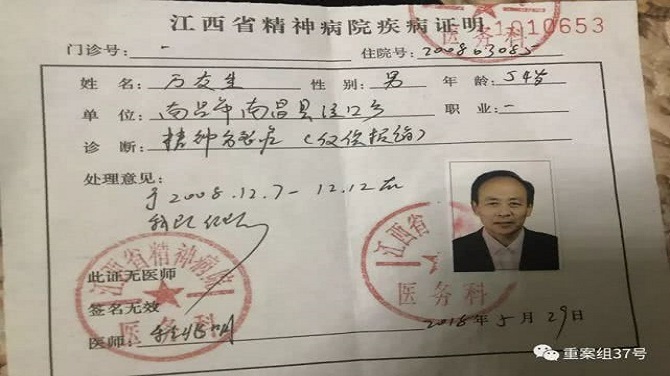 江西省精神病院疾病证明
1010653
医务科
门诊号: - 住院号: 200803085
姓名: 万友生 性别: 男 年龄: 54岁
单位: 南昌市南昌县泾口乡 职业: -
诊断: 精神分裂症
处理意见:
于2008.12.7-12.12在
我院住院
江西省
医务科
江西省精神病院
医务科
此证无医师
签名无效
医师:
2018年5月29日
重案组37号